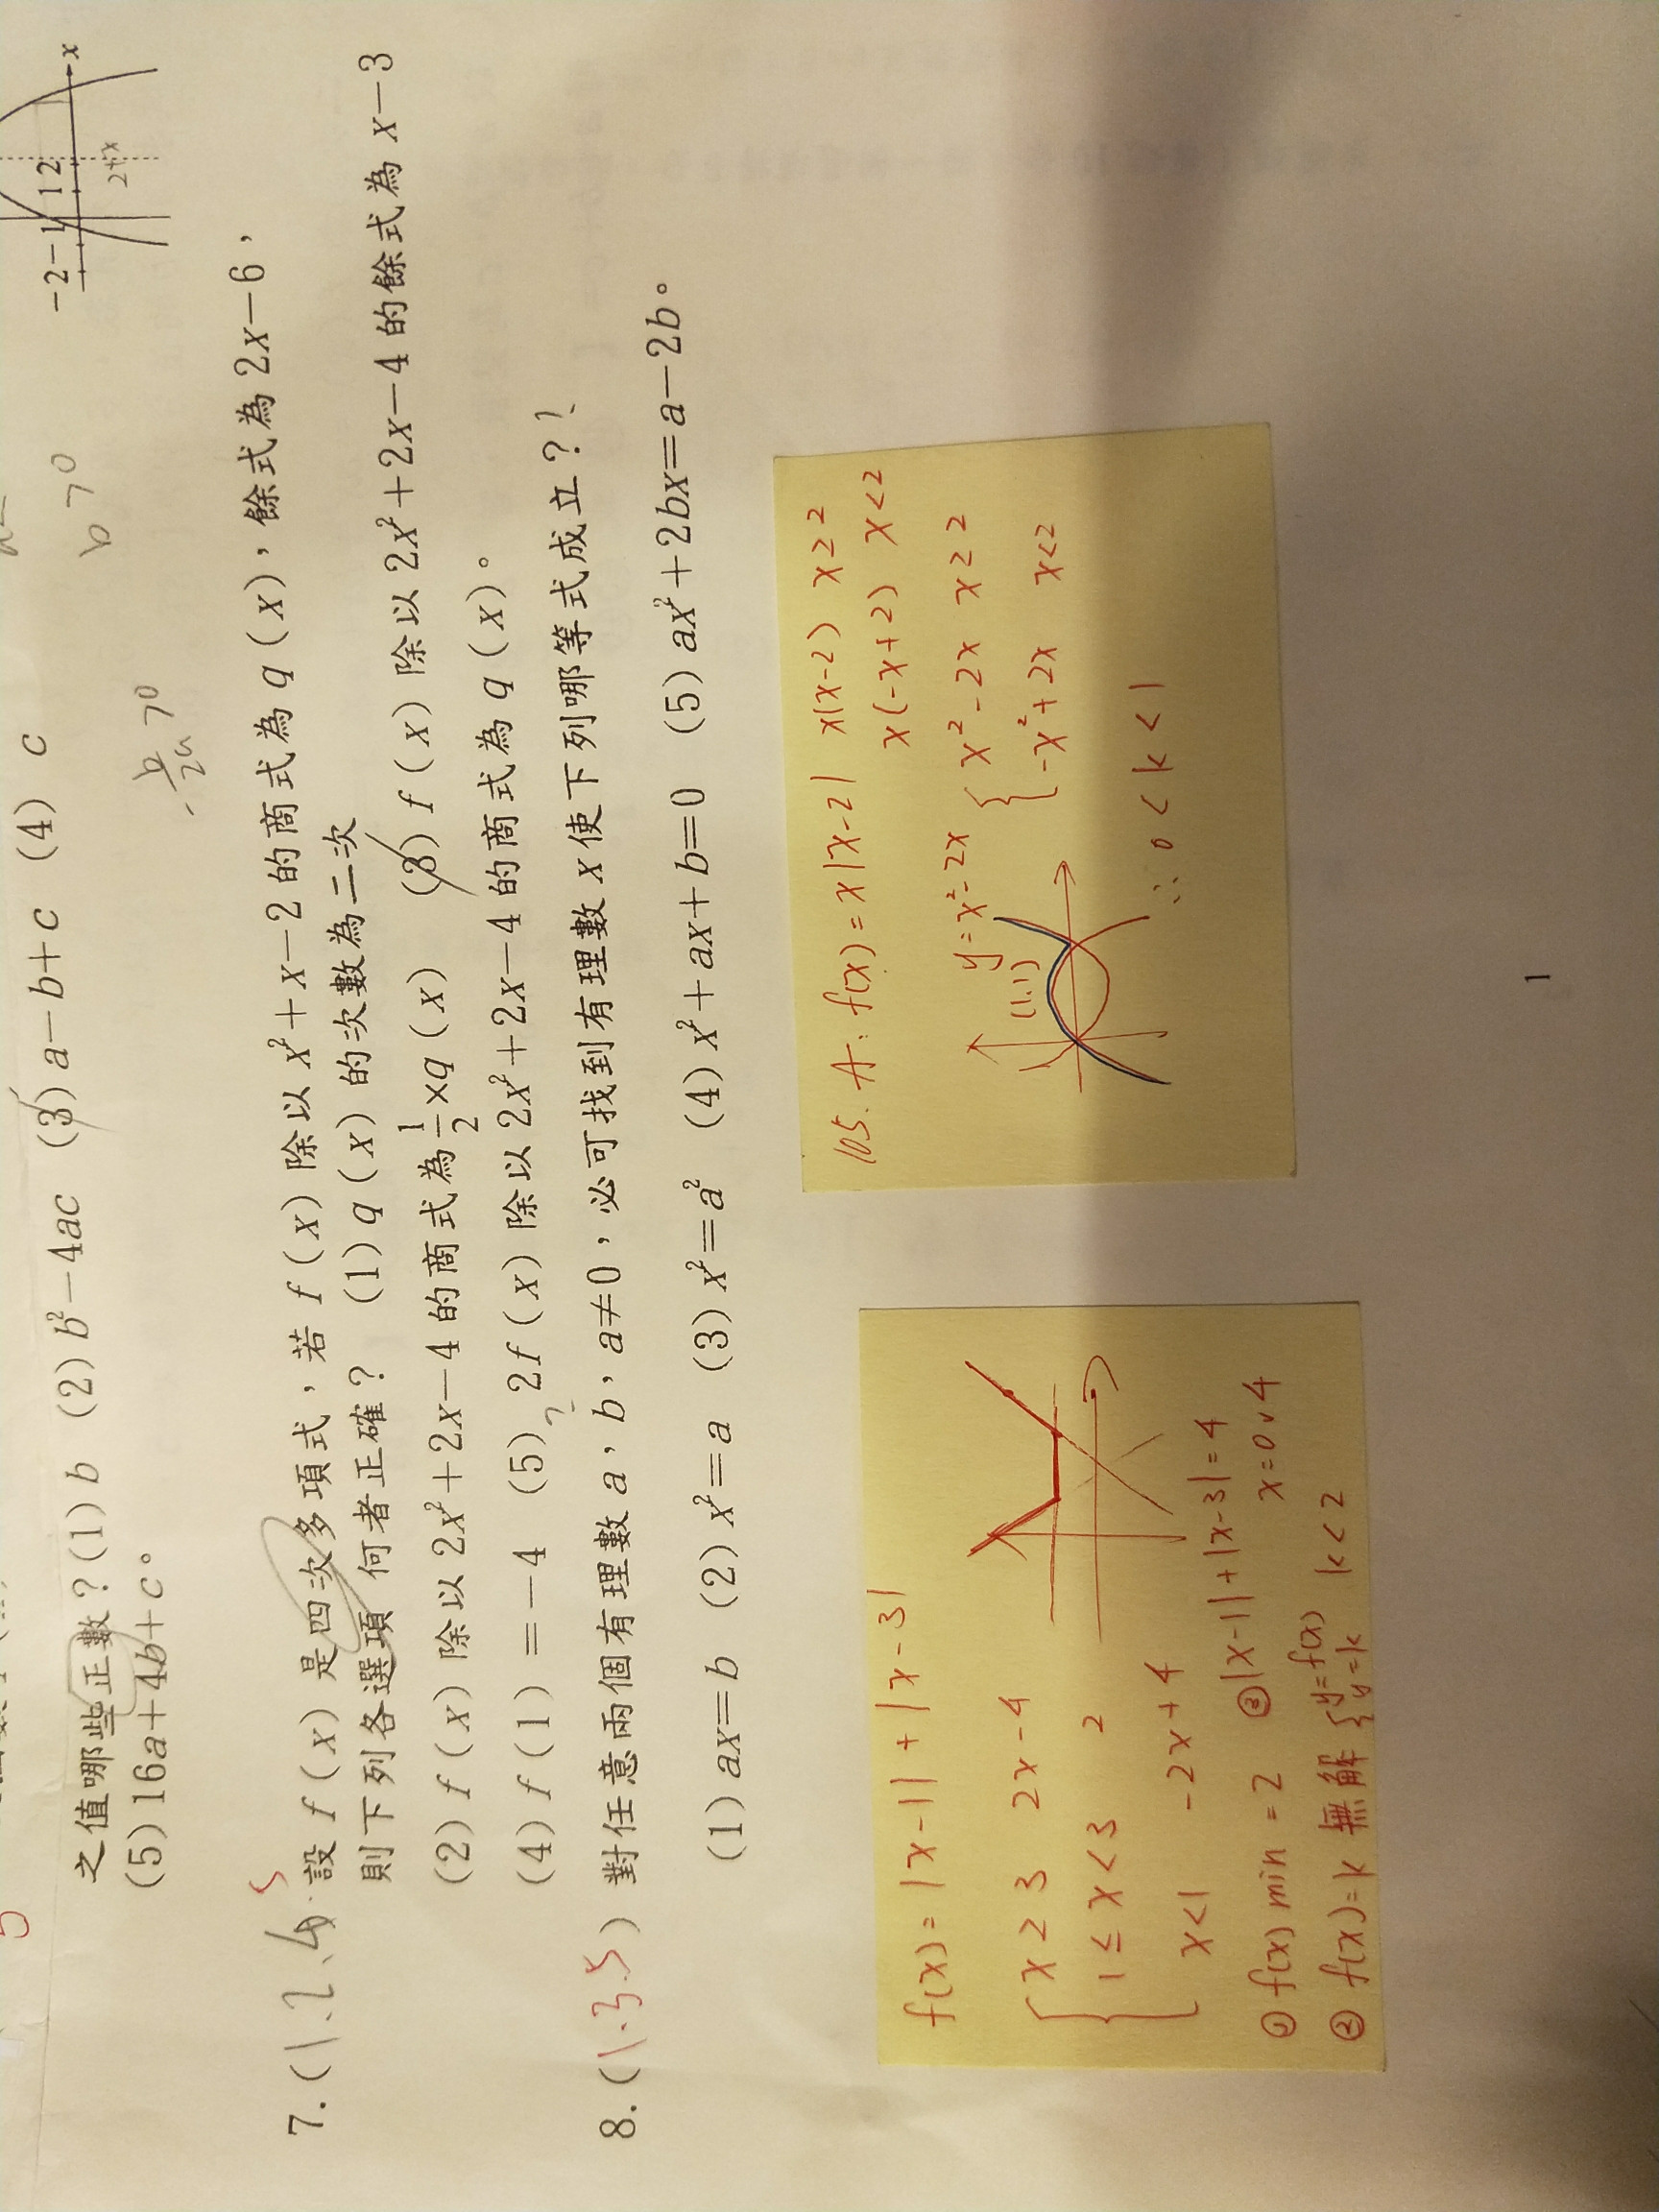 -2 -1 1 2 x
之值哪些正數?(1) b (2) b²−4ac (3) a−b+c (4) c
(5) 16a+4b+c。
b>0
-b/2a >0
7.(1.2.4.5 設 f(x) 是四次多項式,若 f(x) 除以 x²+x−2 的商式為 q(x),餘式為 2x−6,
則下列各選項 何者正確? (1) q(x) 的次數為二次
(2) f(x) 除以 2x²+2x−4 的商式為 1/2×q(x) (3) f(x) 除以 2x²+2x−4 的餘式為 x−3
(4) f(1) =−4 (5) 2f(x) 除以 2x²+2x−4 的商式為 q(x)。
8.(1.3.5) 對任意兩個有理數 a,b,a≠0,必可找到有理數 x 使下列哪等式成立?
(1) ax=b (2) x²=a (3) x²=a² (4) x²+ax+b=0 (5) ax²+2bx=a−2b。
f(x)=|x-1|+|x-3|
x≥3 2x-4
1≤x<3 2
x<1 -2x+4
① f(x) min =2 ③|x-1|+|x-3|=4
x=0∨4
② f(x)=k 無解 {y=f(x) k<2
y=k
105. A: f(x)=x|x-2| x(x-2) x≥2
x(-x+2) x<2
y=x²-2x { x²-2x x≥2
(1,1) -x²+2x x<2
∴ 0<k<1
1